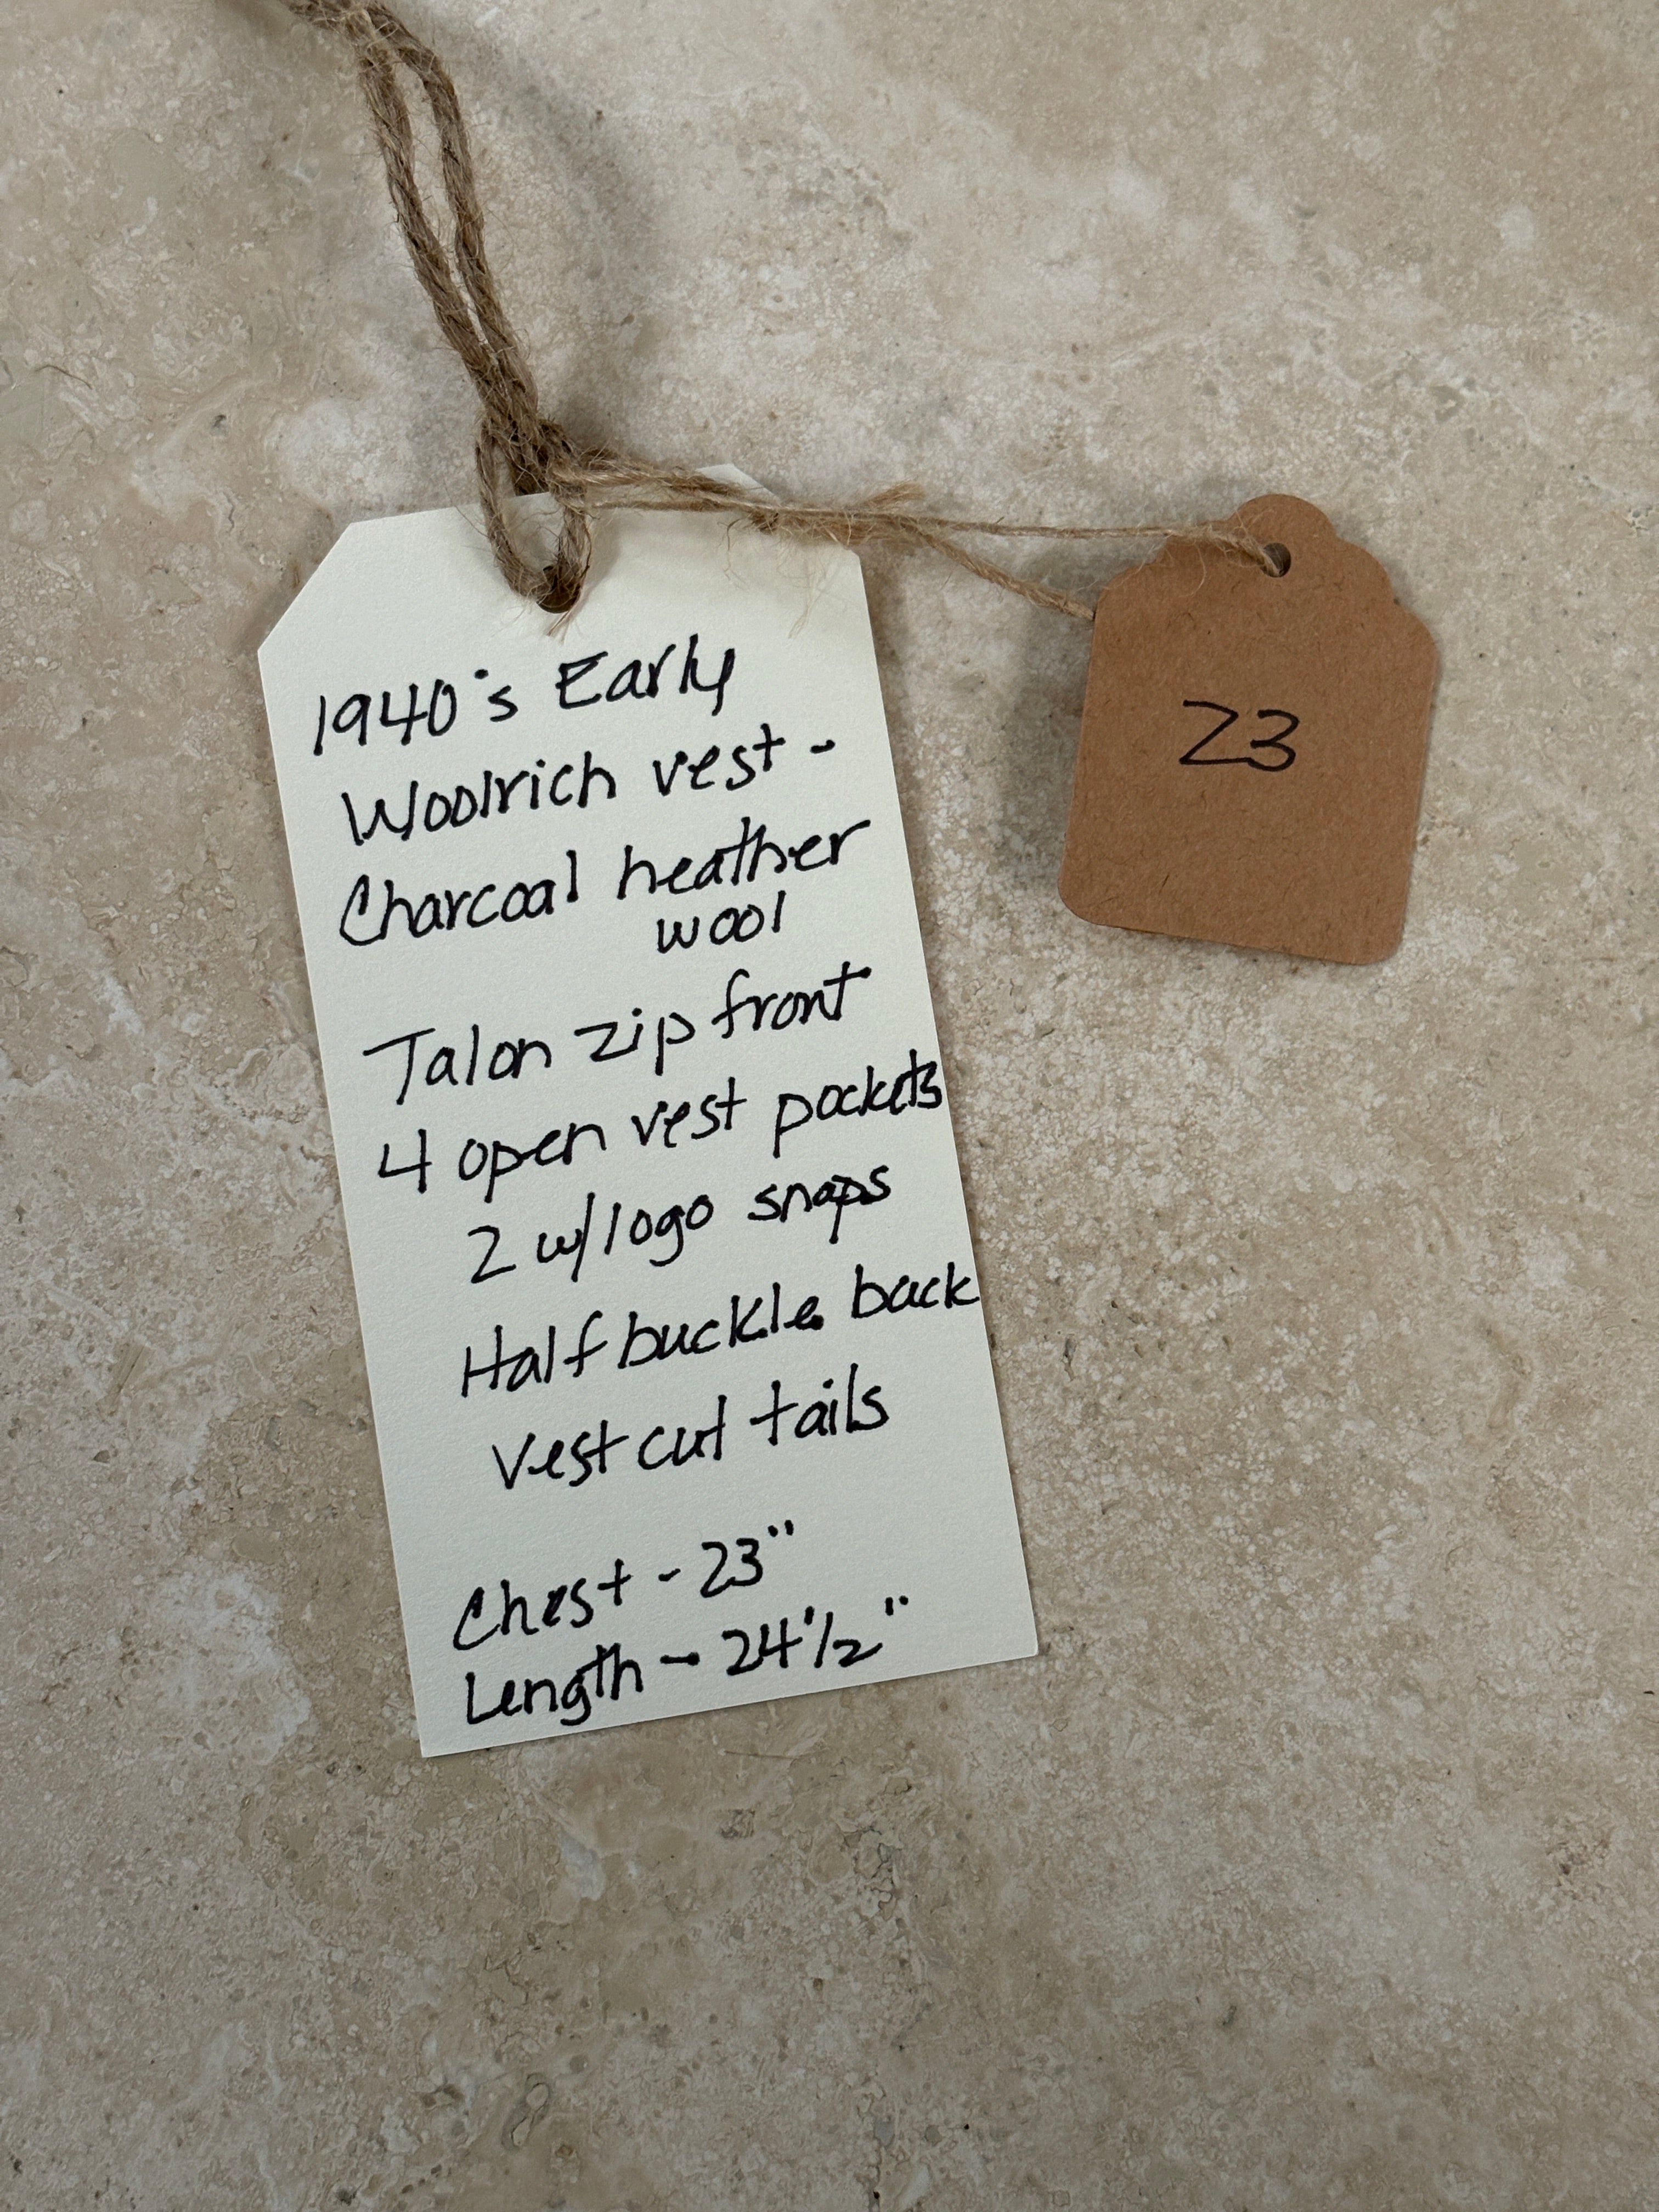 1940's Early
Woolrich vest -
Charcoal heather
wool
Talon zip front
4 open vest pockets
2 w/logo snaps
Half buckle back
vest cut tails
Chest - 23"
Length - 24 1/2"
23